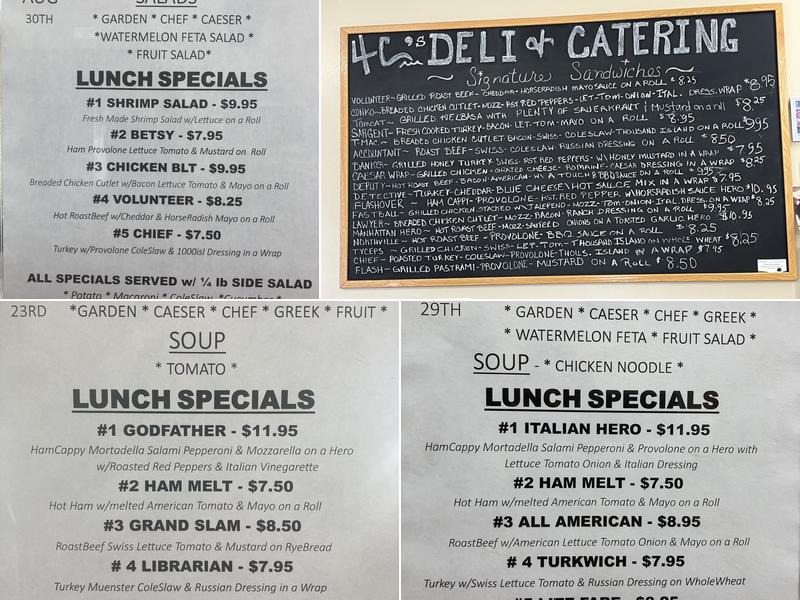 AUG SALADS
30TH * GARDEN * CHEF * CAESER *
*WATERMELON FETA SALAD *
* FRUIT SALAD*
LUNCH SPECIALS
#1 SHRIMP SALAD - $9.95
Fresh Made Shrimp Salad w/Lettuce on a Roll
#2 BETSY - $7.95
Ham Provolone Lettuce Tomato & Mustard on Roll
#3 CHICKEN BLT - $9.95
Breaded Chicken Cutlet w/Bacon Lettuce Tomato & Mayo on a Roll
#4 VOLUNTEER - $8.25
Hot RoastBeef w/Cheddar & HorseRadish Mayo on a Roll
#5 CHIEF - $7.50
Turkey w/Provolone ColeSlaw & 1000isl Dressing in a Wrap
ALL SPECIALS SERVED w/ ¼ lb SIDE SALAD
* Potato * Macaroni * ColeSlaw *Cucumber *
4C's DELI & CATERING
~ Signature Sandwiches ~
VOLUNTEER~GRILLED ROAST BEEF-CHEDDAR-HORSERADISH MAYO SAUCE ON A ROLL $8.25
CONKO~BREADED CHICKEN CUTLET-MOZZ-RST RED PEPPERS-LET-TOM-ONION-ITAL. DRESS. WRAP $8.95
TOMCAT~ GRILLED KIELBASA WITH PLENTY OF SAUERKRAUT & Mustard on a roll $8.25
SARGENT~FRESH COOKED TURKEY-BACON-LET-TOM-MAYO ON A ROLL $8.95
T-MAC~ BREADED CHICKEN CUTLET BACON-SWISS-COLESLAW-THOUSAND ISLAND ON A ROLL $9.95
ACCOUNTANT~ ROAST BEEF-SWISS-COLESLAW-RUSSIAN DRESSING ON A ROLL $8.50
BANKS~GRILLED HONEY TURKEY SWISS-RST RED PEPPERS-W/HONEY MUSTARD IN A WRAP $7.95
CAESAR WRAP~GRILLED CHICKEN-GRATED CHEESE-ROMAINE-CAESAR DRESSING IN A WRAP $8.25
DEPUTY~HOT ROAST BEEF-BACON-AMERICAN-W/A TOUCH OF BBQ SAUCE ON A ROLL $9.95
DETECTIVE~TURKEY CHEDDAR-BLUE CHEESE\HOT SAUCE MIX IN A WRAP $7.95
FLASHOVER~ HAM CAPPY-PROVOLONE-RST.RED PEPPER W/HORSRADISH SAUCE HERO $10.95
FASTBALL~GRILLED CHICKEN STACKED W/JALEPENO-MOZZ-TOM-ONION-ITAL DRESS. ON A WRAP $8.25
LAWYER~BREADED CHICKEN CUTLET-MOZZ-BACON-RANCH DRESSING ON A ROLL $9.95
MANHATTAN HERO~ HOT ROAST BEEF-MOZZ-SAUTEED ONIONS ON A TOASTED GARLIC HERO $10.95
NORTHVILLE~ HOT ROAST BEEF-PROVOLONE-BBQ SAUCE ON A ROLL $8.25
TYCEPS~GRILLED CHICKEN-SWISS-LET-TOM-THOUSAND ISLAND ON WHOLE WHEAT $8.25
CHIEF~ROASTED TURKEY-COLESLAW-PROVOLONE-THOLS. ISLAND IN A WRAP $7.95
FLASH~GRILLED PASTRAMI-PROVOLONE-MUSTARD ON A ROLL $8.50
23RD *GARDEN * CAESER * CHEF * GREEK * FRUIT *
SOUP
* TOMATO *
LUNCH SPECIALS
#1 GODFATHER - $11.95
HamCappy Mortadella Salami Pepperoni & Mozzarella on a Hero
w/Roasted Red Peppers & Italian Vinegarette
#2 HAM MELT - $7.50
Hot Ham w/melted American Tomato & Mayo on a Roll
#3 GRAND SLAM - $8.50
RoastBeef Swiss Lettuce Tomato & Mustard on RyeBread
# 4 LIBRARIAN - $7.95
Turkey Muenster ColeSlaw & Russian Dressing in a Wrap
29TH * GARDEN * CAESER * CHEF * GREEK *
* WATERMELON FETA * FRUIT SALAD *
SOUP - * CHICKEN NOODLE *
LUNCH SPECIALS
#1 ITALIAN HERO - $11.95
HamCappy Mortadella Salami Pepperoni & Provolone on a Hero with
Lettuce Tomato Onion & Italian Dressing
#2 HAM MELT - $7.50
Hot Ham w/melted American Tomato & Mayo on a Roll
#3 ALL AMERICAN - $8.95
RoastBeef w/American Lettuce Tomato Onion & Mayo on a Roll
# 4 TURKWICH - $7.95
Turkey w/Swiss Lettuce Tomato & Russian Dressing on WholeWheat